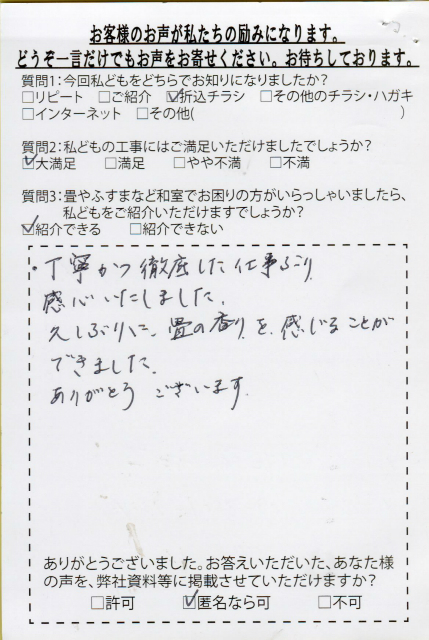 お客様のお声が私たちの励みになります。
どうぞ一言だけでもお声をお寄せください。お待ちしております。
質問1：今回私どもをどちらでお知りになりましたか？
□リピート □ご紹介 ☑折込チラシ □その他のチラシ・ハガキ
□インターネット □その他( )
質問2：私どもの工事にはご満足いただけましたでしょうか？
☑大満足 □満足 □やや不満 □不満
質問3：畳やふすまなど和室でお困りの方がいらっしゃいましたら、
私どもをご紹介いただけますでしょうか？
☑紹介できる □紹介できない
・丁寧かつ徹底した仕事ぶり
感心いたしました。
久しぶりに、畳の香りを、感じることが
できました。
ありがとうございます。
ありがとうございました。お答えいただいた、あなた様
の声を、弊社資料等に掲載させていただけますか？
□許可 ☑匿名なら可 □不可